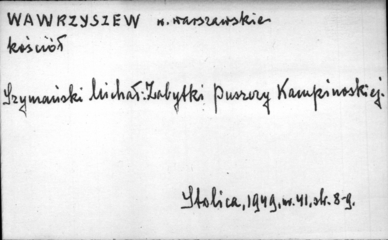 WAWRZYSZEW w. warszawskie
kościół
Szymański Michał: Zabytki Puszczy Kampinoskiej.
Stolica, 1949, nr. 41, str. 8-9.